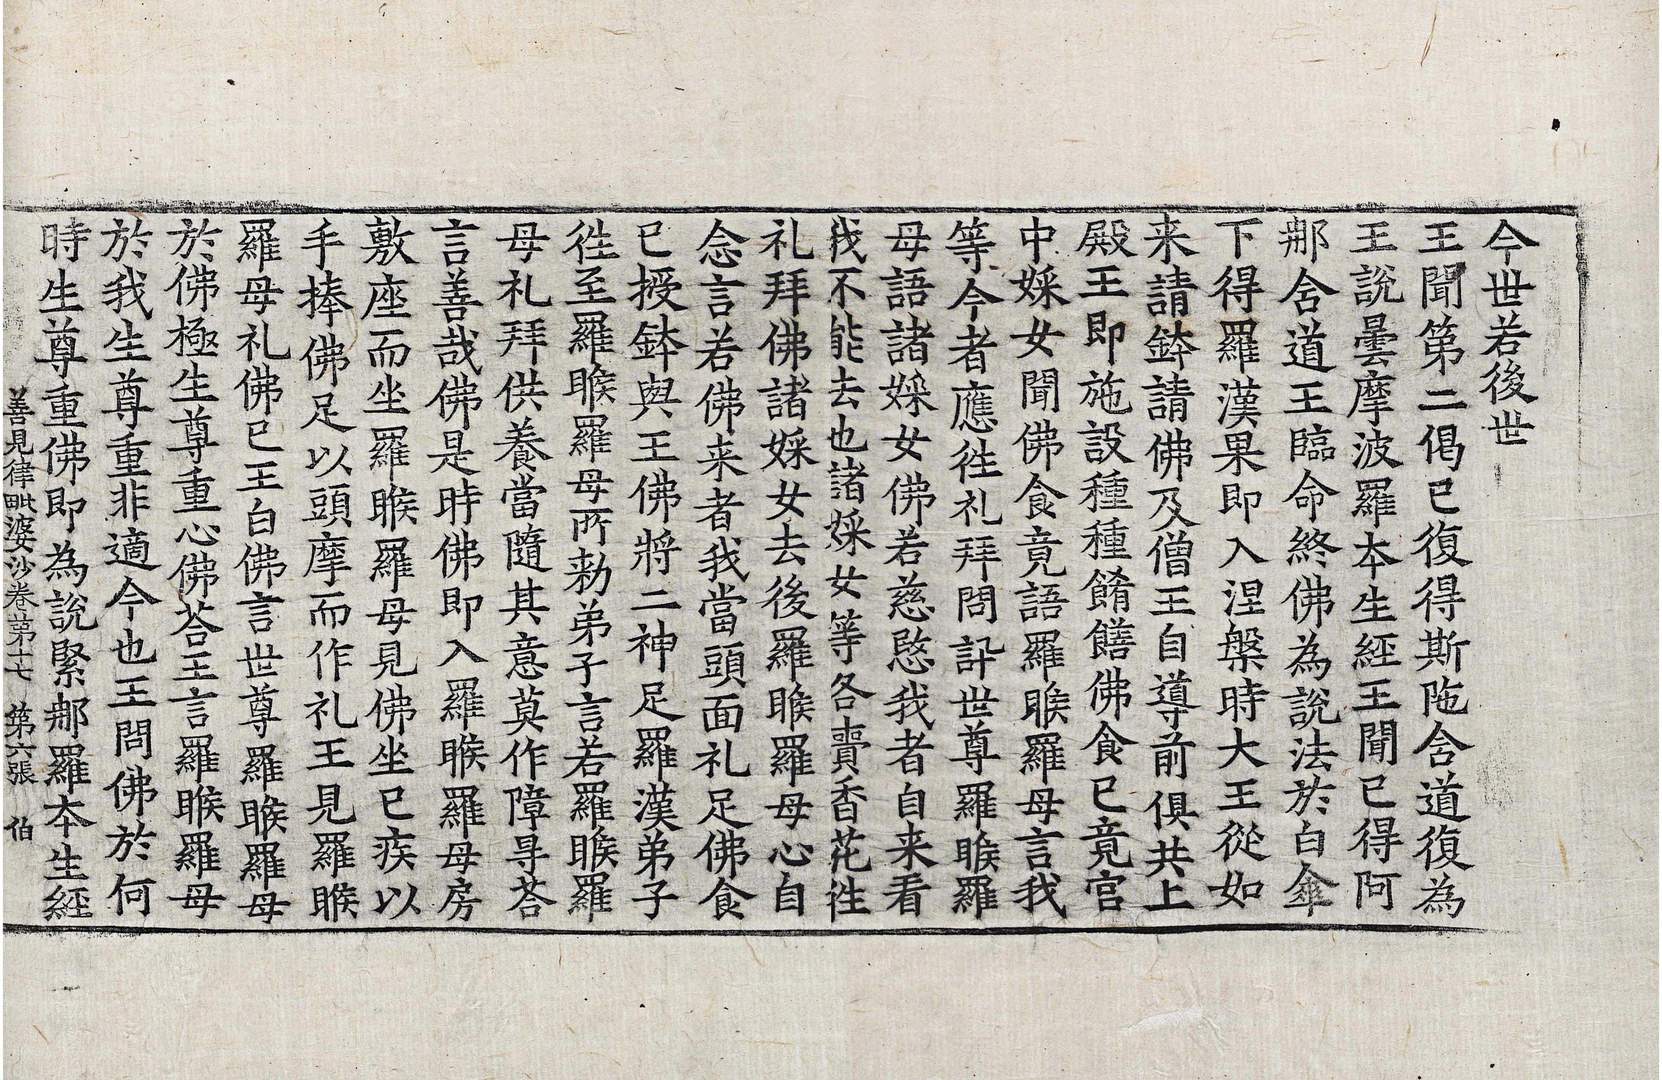 今世若後世
王聞第二偈已復得斯陁含道復為
王說曇摩波羅本生經王聞已得阿
那含道王臨命終佛為說法於白傘
下得羅漢果即入涅槃時大王從如
来請鉢請佛及僧王自導前俱共上
殿王即施設種種餚饍佛食已竟宮
中婇女聞佛食竟語羅睺羅母言我
等今者應徃礼拜問訊世尊羅睺羅
母語諸婇女佛若慈愍我者自来看
我不能去也諸婇女等各賷香花徃
礼拜佛諸婇女去後羅睺羅母心自
念言若佛来者我當頭面礼足佛食
已授鉢與王佛將二神足羅漢弟子
徃至羅睺羅母所勑弟子言若羅睺羅
母礼拜供養當隨其意莫作障㝵荅
言善哉佛是時佛即入羅睺羅母房
敷座而坐羅睺羅母見佛坐已疾以
手捧佛足以頭摩而作礼王見羅睺
羅母礼佛已王白佛言世尊羅睺羅母
於佛極生尊重心佛荅王言羅睺羅母
於我生尊重非適今也王問佛於何
時生尊重佛即為說緊那羅本生經
善見律毗婆沙卷第十七　第六張　伯